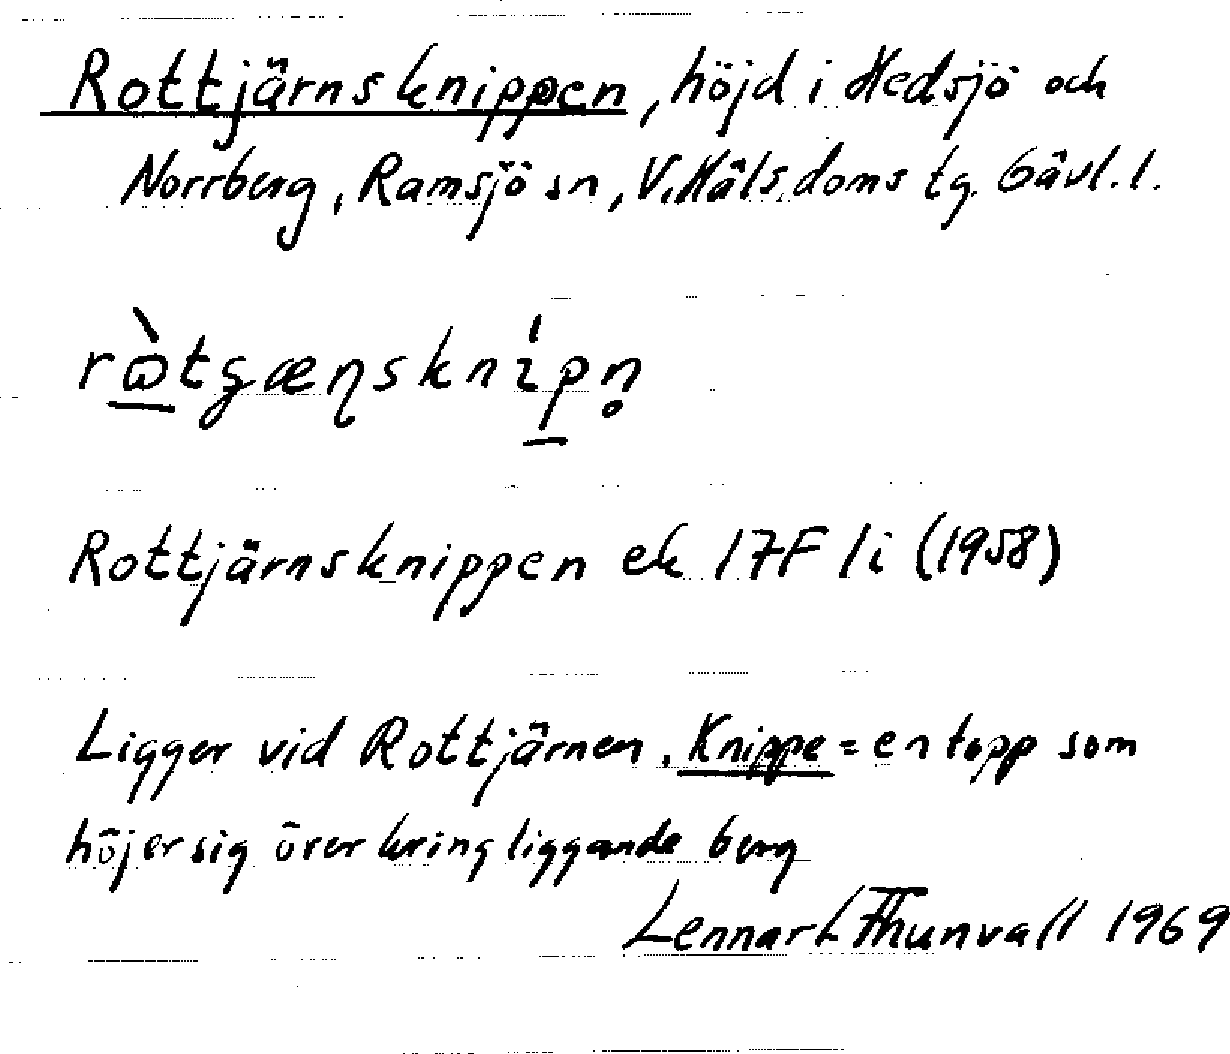 Rottjärnsknippen, höjd i Hedsjö och
Norrberg, Ramsjö sn, V. Häls. doms tg. Gävl. l.
Rottjärnsknippen ek 17F 1i (1958)
Ligger vid Rottjärnen. Knippe = en topp som
höjer sig över kringliggande berg
Lennart Thunvall 1969